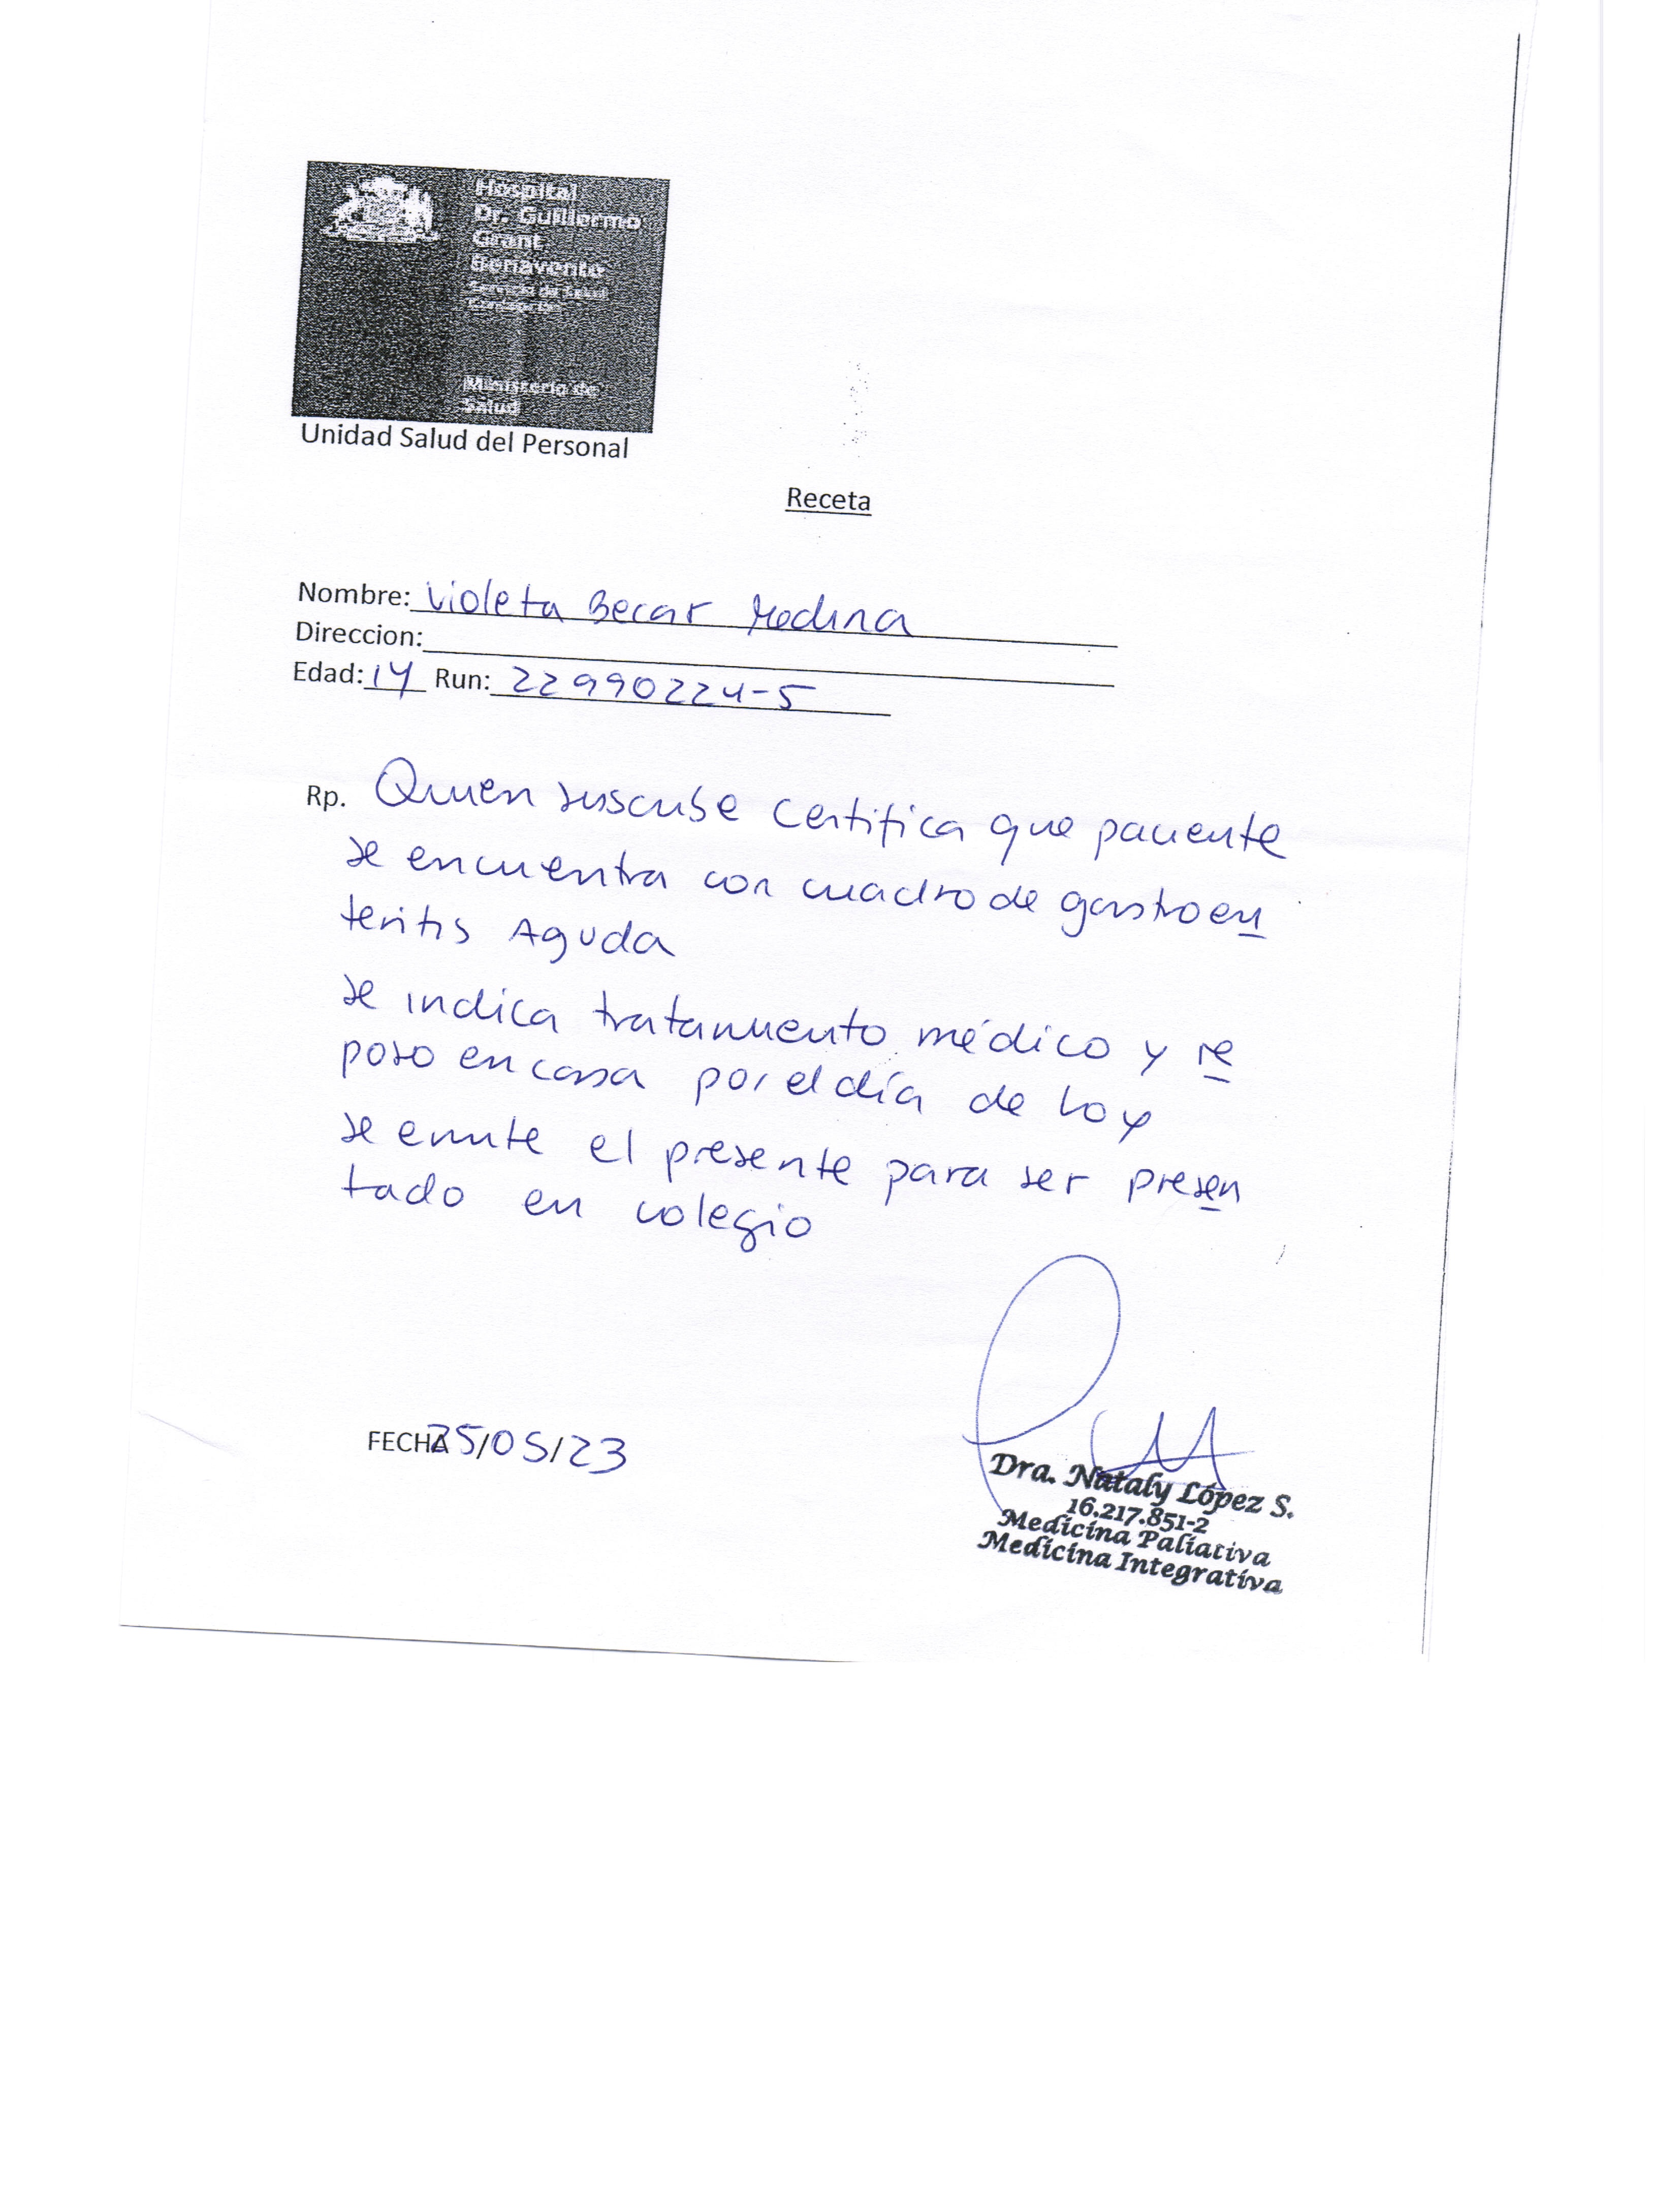 Hospital
Dr. Guillermo
Grant
Benavente
Servicio de Salud
Concepción
Ministerio de
Salud
Unidad Salud del Personal
Receta
Nombre: Violeta Becar Medina
Direccion:
Edad: 14 Run: 22990224-5
Rp. Quien suscribe certifica que paciente
se encuentra con cuadro de gastroen
teritis Aguda
se indica tratamiento médico y re
poso en casa por el día de hoy
se emite el presente para ser presen
tado en colegio
FECHA 25/05/23
Dra. Nataly López S.
16.217.851-2
Medicina Paliativa
Medicina Integrativa